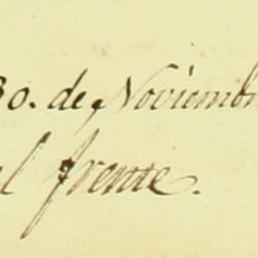 30. de Noviemb
al frente.